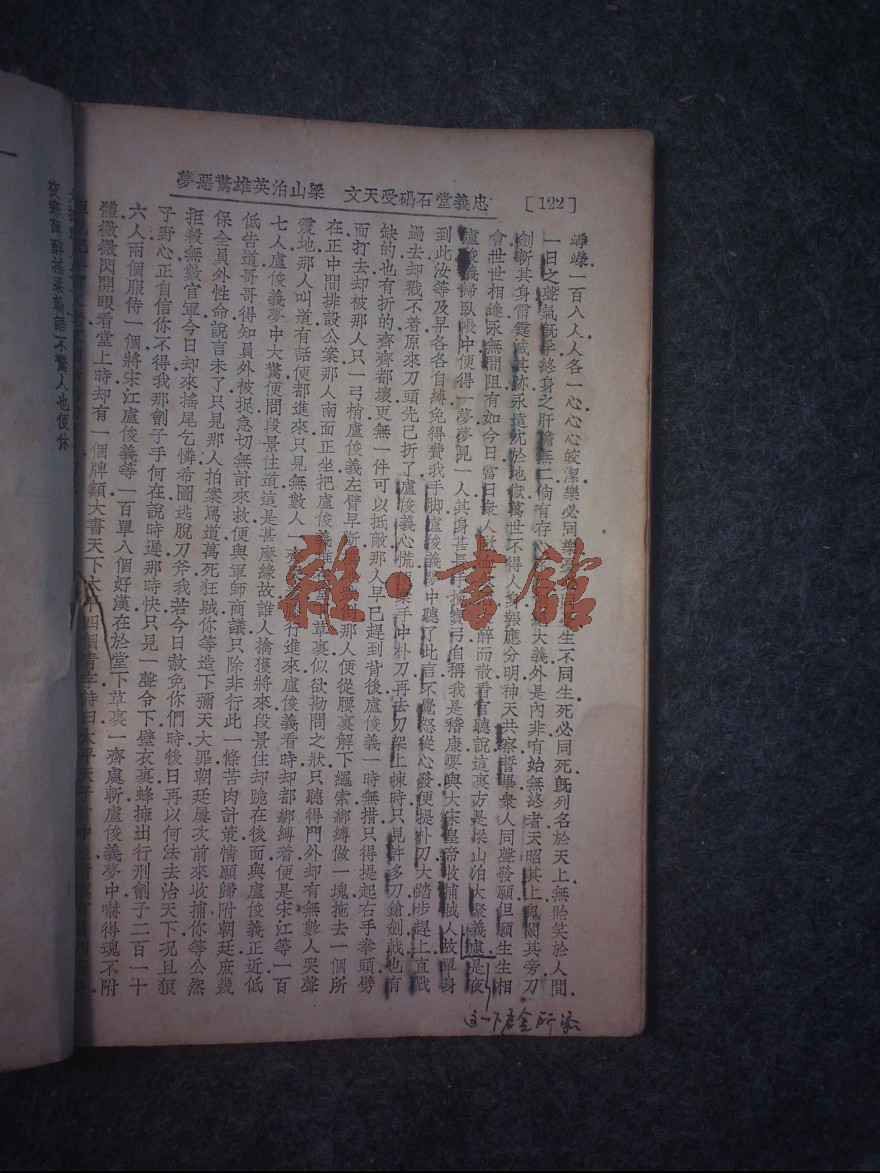 [122]
忠義堂石碣受天文 梁山泊英雄驚惡夢
崢嶸一百八人人各一心心心皎潔樂必同樂 生不同生死必同死既列名於天上無貽笑於人間
一日之聲氣既孚終身之肝膽無二倘有存心 絕大義外是內非有始無終者天昭其上鬼闞其旁刀
劍斬其身雷霆滅其跡永遠沈於地獄萬世不得人身報應分明神天共察誓畢衆人同聲發願但願生生相
會世世相逢永無間阻有如今日當日衆人 醉而散看官聽說這裏方是梁山泊大聚義處是夜
盧俊義歸臥帳中便得一夢夢見一人其身甚長手挽寶弓自稱我是稽康要與大宋皇帝收捕賊人故單身
到此汝等及早各各自縛免得費我手脚盧俊義夢中聽了此言不覺怒從心發便提朴刀大踏步趕上直戳
過去却戳不着原來刀頭先已折了盧俊義心慌 棄手中朴刀再去刀架上揀時只見許多刀鎗劍戟也有
缺的也有折的齊齊都壞更無一件可以抵敵那人早已趕到背後盧俊義一時無措只得提起右手拳頭劈
面打去却被那人只一弓梢盧俊義左臂早斷 那人便從腰裏解下繩索綁縛做一塊拖去一個所
在正中間排設公案那人南面正坐把盧俊義推在 草裏似欲勘問之狀只聽得門外却有無數人哭聲
震地那人叫道有話便都進來只見無數人一齊 行進來盧俊義看時却都綁縛着便是宋江等一百
七人盧俊義夢中大驚便問段景住道這是甚麼緣故誰人擒獲將來段景住却跪在後面與盧俊義正近低
低告道哥哥得知員外被捉急切無計來救便與軍師商議只除非行此一條苦肉計策情願歸附朝廷庶幾
保全員外性命說言未了只見那人拍案罵道萬死狂賊你等造下彌天大罪朝廷屢次前來收捕你等公然
拒殺無數官軍今日却來搖尾乞憐希圖逃脫刀斧我若今日赦免你們時後日再以何法去治天下况且狼
子野心正自信你不得我那劊子手何在說時遲那時快只見一聲令下壁衣裏蜂擁出行刑劊子二百一十
六人兩個服侍一個將宋江盧俊義等一百單八個好漢在於堂下草裏一齊處斬盧俊義夢中嚇得魂不附
體微微閃開眼看堂上時却有一個牌額大書天下太平四個青字詩曰太平天子
這一下是金所添
語不驚人也便休
雜·書館